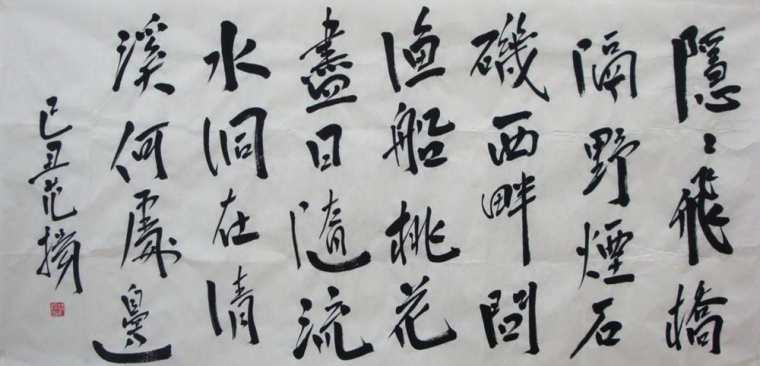 隱〻飛橋
隔野煙石
磯西畔問
漁船桃花
盡日隨流
水洞在清
溪何處邊
己丑范